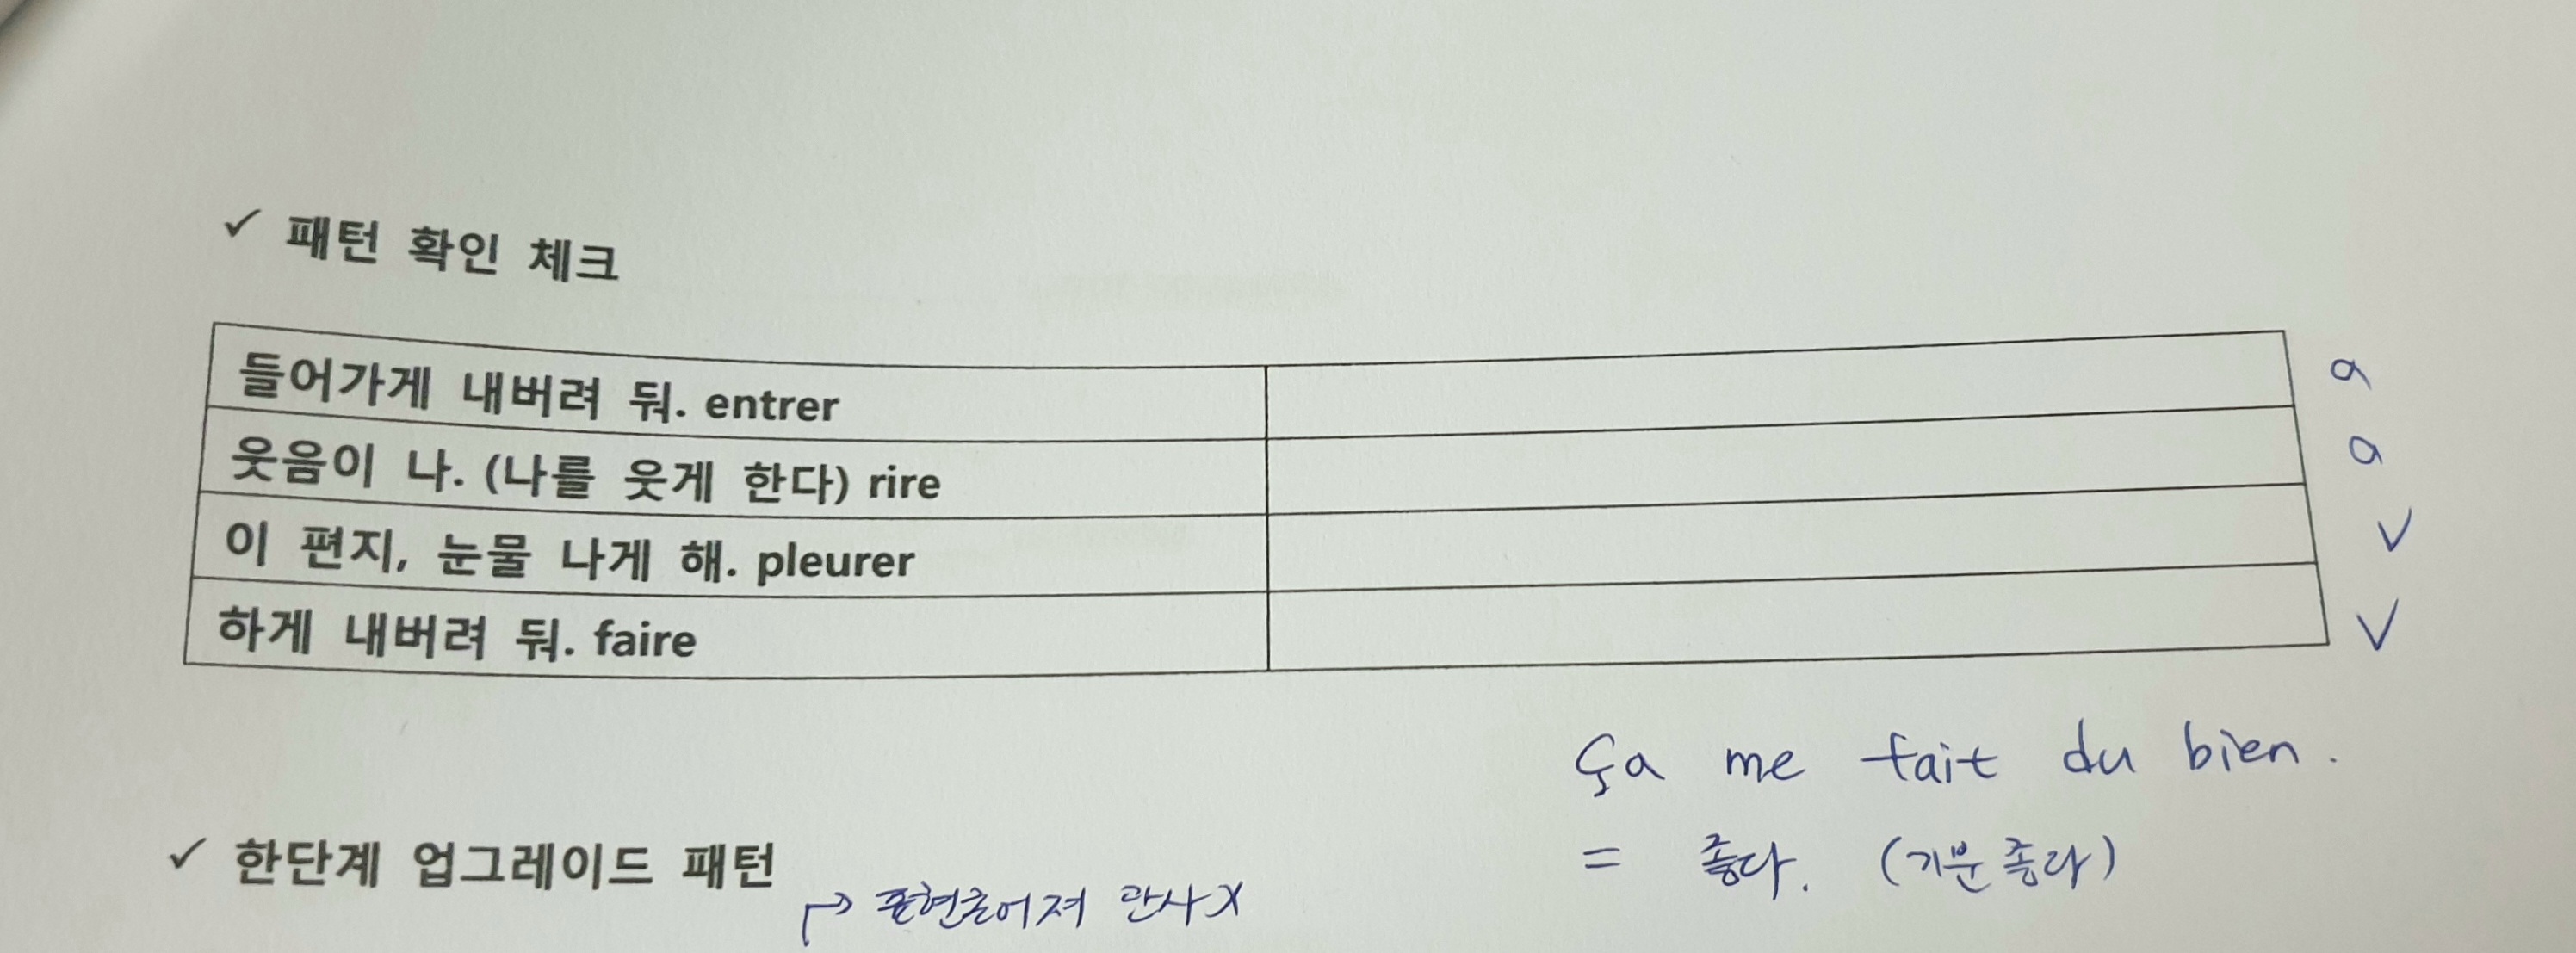 ✓ 패턴 확인 체크
들어가게 내버려 둬. entrer a
웃음이 나. (나를 웃게 한다) rire a
이 편지, 눈물 나게 해. pleurer V
하게 내버려 둬. faire V
Ça me fait du bien.
= 좋다. (기분 좋다)
✓ 한단계 업그레이드 패턴
→ 관사 X